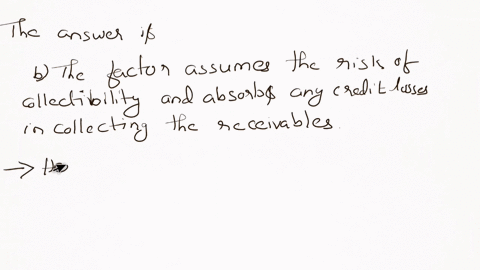 The answer is
b) The factor assumes the risk of
collectibility and absorbs any credit losses
in collecting the receivables.
→